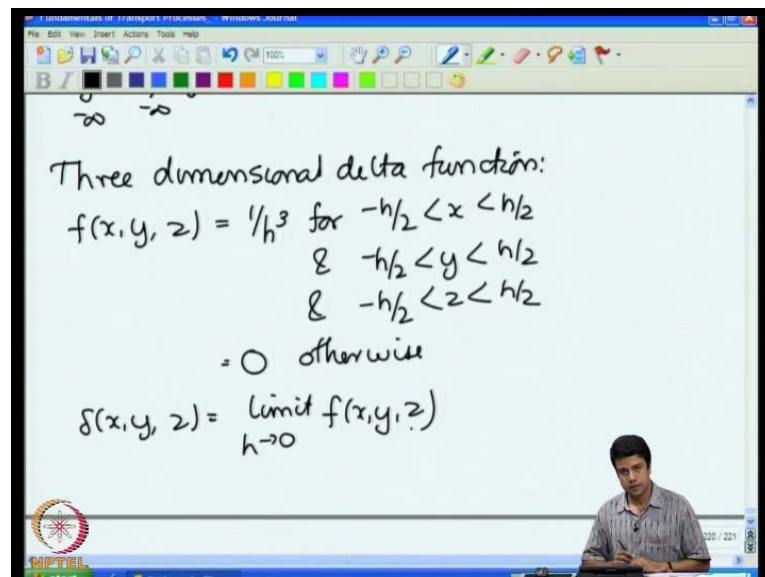 Fundamentals of Transport Processes - Windows Journal
File Edit View Insert Actions Tools Help
100%
B I
-∞ -∞
Three dimensional delta function:
f(x, y, z) = 1/h³ for -h/2 < x < h/2
& -h/2 < y < h/2
& -h/2 < z < h/2
= 0 otherwise
δ(x, y, z) = limit f(x, y, z)
h→0
220 / 221
NPTEL